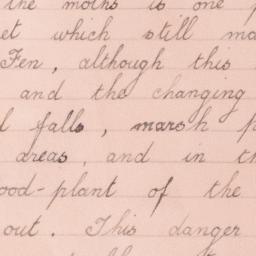 the moths is one
et which still ma
Fen, although this
and the changing
l falls, marsh p
areas, and in th
ood-plant of the
out. This danger